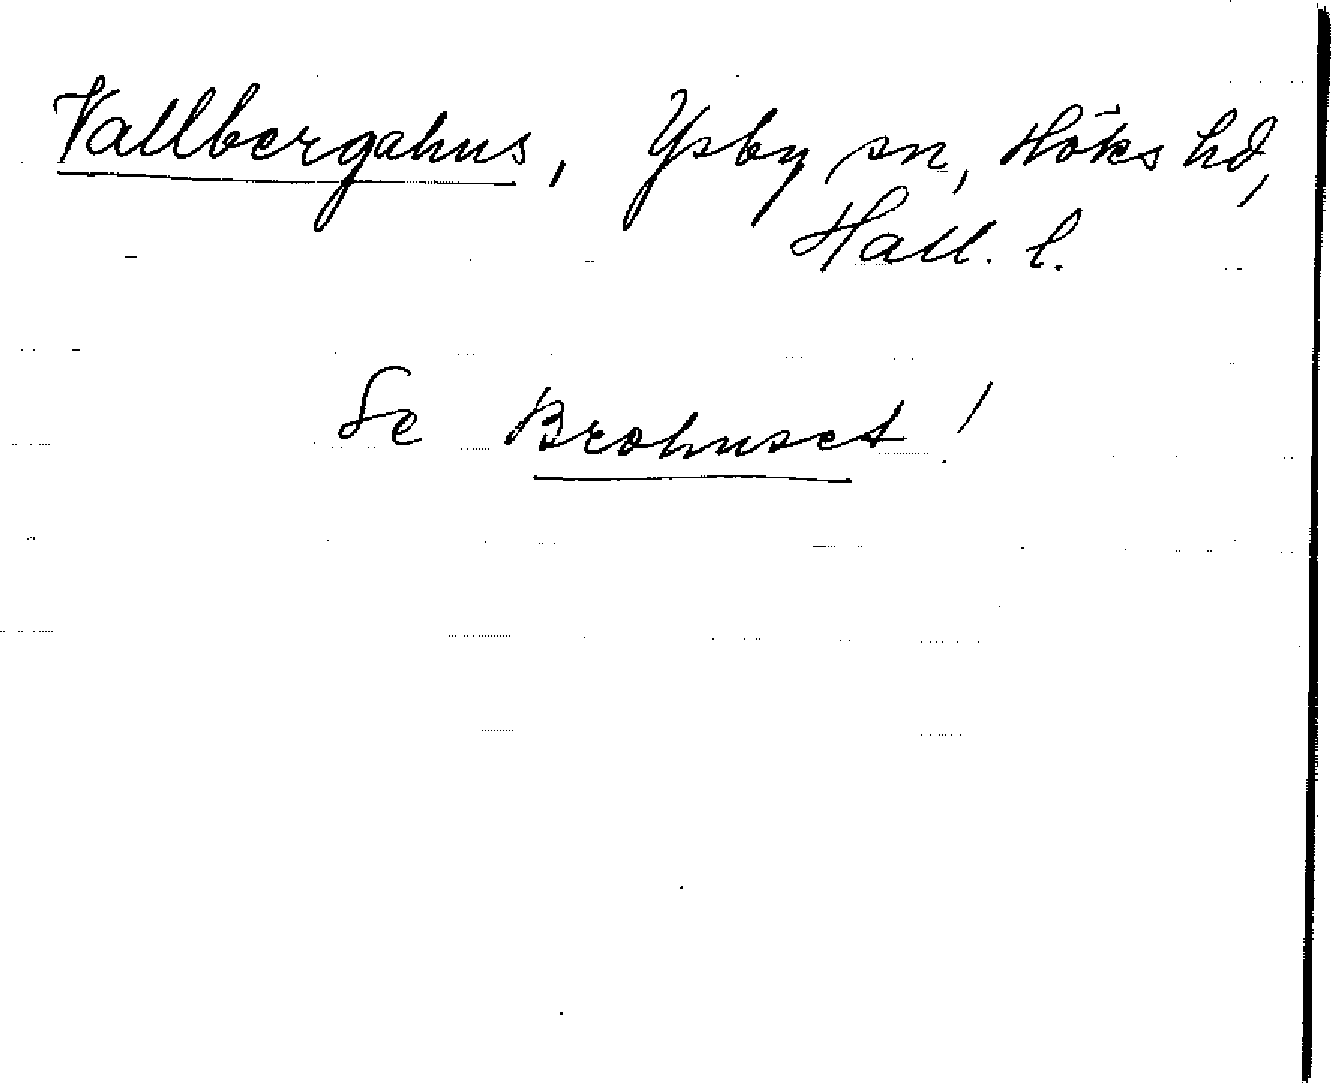 Vallbergahus, Ysby sn, Höks hd,
Hall. l.
Se Brohuset!